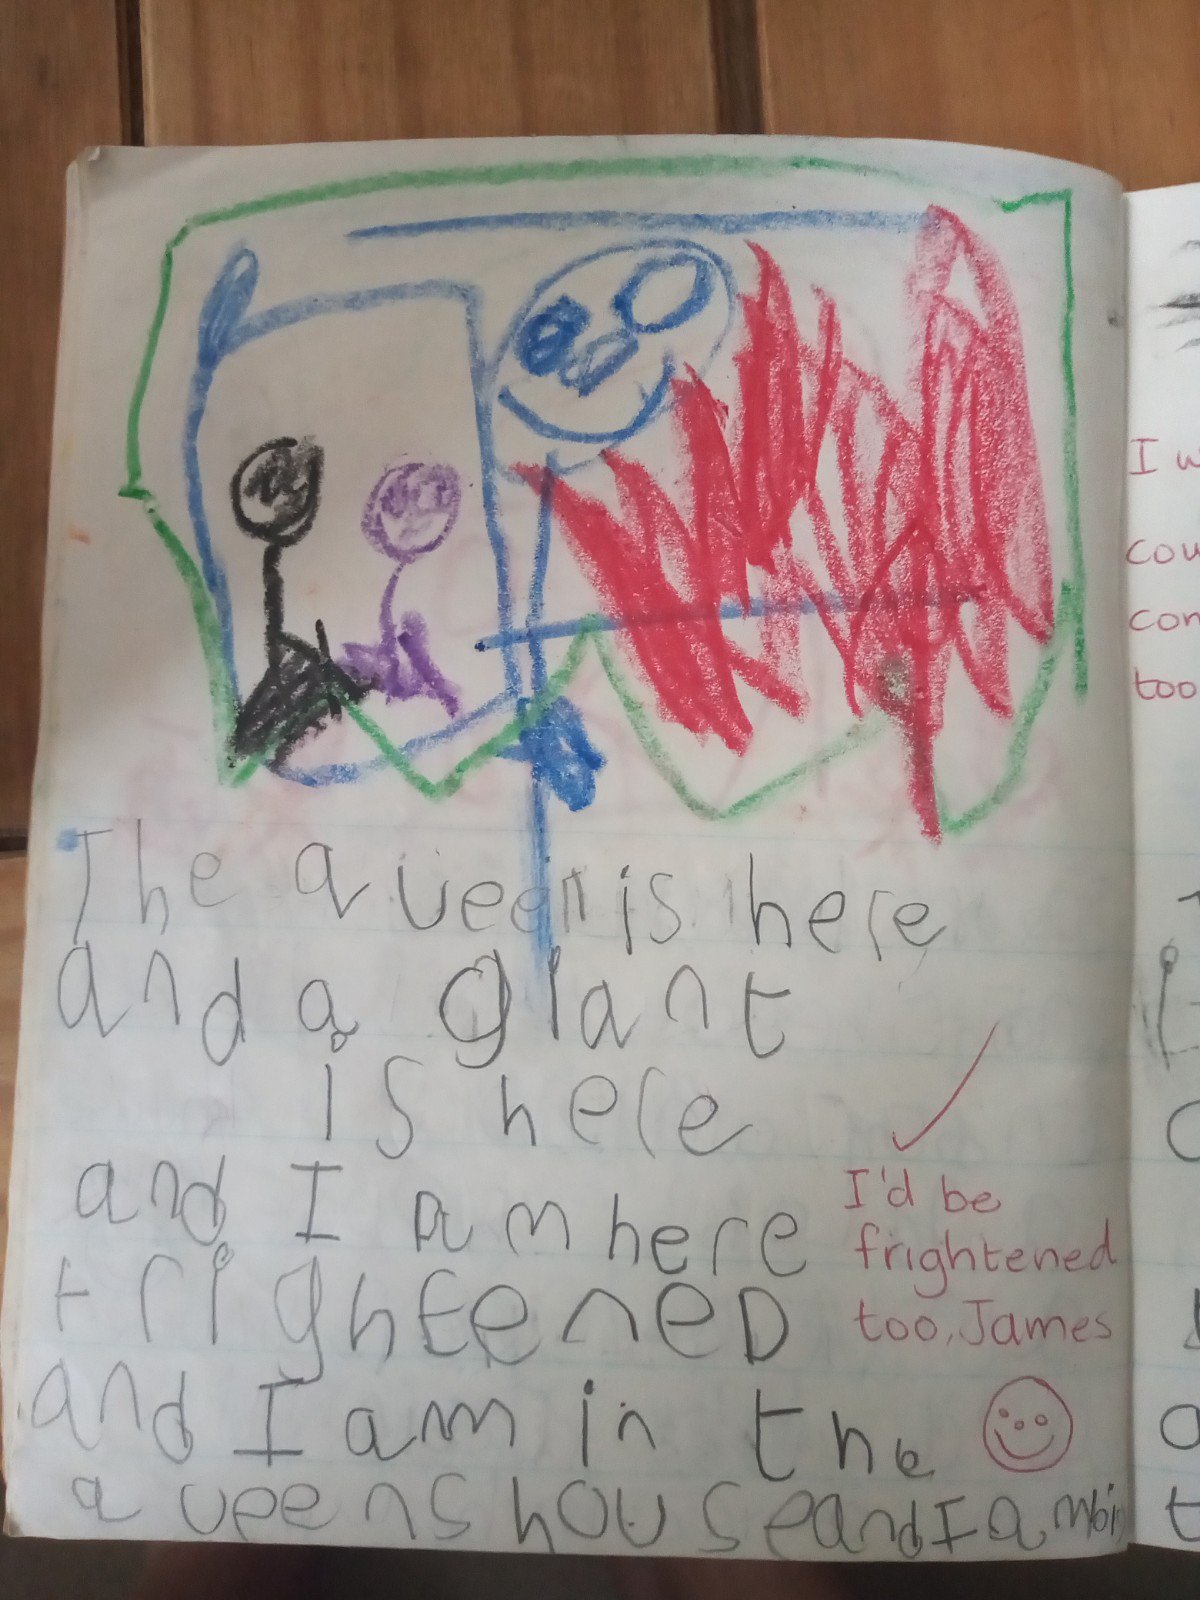 The queen is here
and a giant
is here
and I am here
frightened
and I am in the
queens house and I am
I'd be
frightened
too, James
I w
cou
con
too